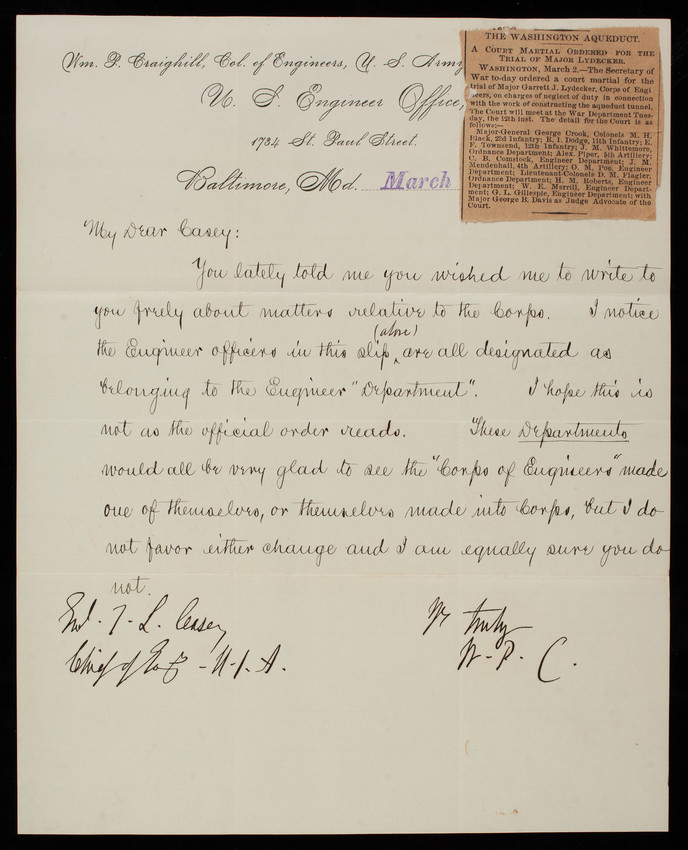 Wm. P. Craighill, Col. of Engineers, U. S. Army
U. S. Engineer Office,
1734 St. Paul Street.
Baltimore, Md. March
THE WASHINGTON AQUEDUCT.
A COURT MARTIAL ORDERED FOR THE
TRIAL OF MAJOR LYDECKER.
WASHINGTON, March 2.—The Secretary of
War to-day ordered a court martial for the
trial of Major Garrett J. Lydecker, Corps of Engi
neers, on charges of neglect of duty in connection
with the work of constructing the aqueduct tunnel.
The Court will meet at the War Department Tues-
day, the 12th inst. The detail for the Court is as
follows:—
Major-General George Crook, Colonels M. H.
Black, 23d Infantry; R. I. Dodge, 11th Infantry; E.
F. Townsend, 12th Infantry; J. M. Whittemore,
Ordnance Department; Alex. Piper, 5th Artillery;
C. B. Comstock, Engineer Department; J. M.
Mendenhall, 4th Artillery; O. M. Poe, Engineer
Department; Lieutenant-Colonels D. M. Flagler,
Ordnance Department; H. M. Roberts, Engineer
Department; W. E. Merrill, Engineer Depart-
ment; G. L. Gillespie, Engineer Department; with
Major George B. Davis as Judge Advocate of the
Court.
My Dear Casey:
You lately told me you wished me to write to
you freely about matters relative to the Corps. I notice
the Engineer officers in this slip (above) are all designated as
belonging to the Engineer "Department". I hope this is
not as the official order reads. These Departments
would all be very glad to see the "Corps of Engineers" made
one of themselves, or themselves made into Corps, but I do
not favor either change and I am equally sure you do
not.
Yr truly
W. P. C.
T. L. Casey
Chief of Eng - U.S.A.